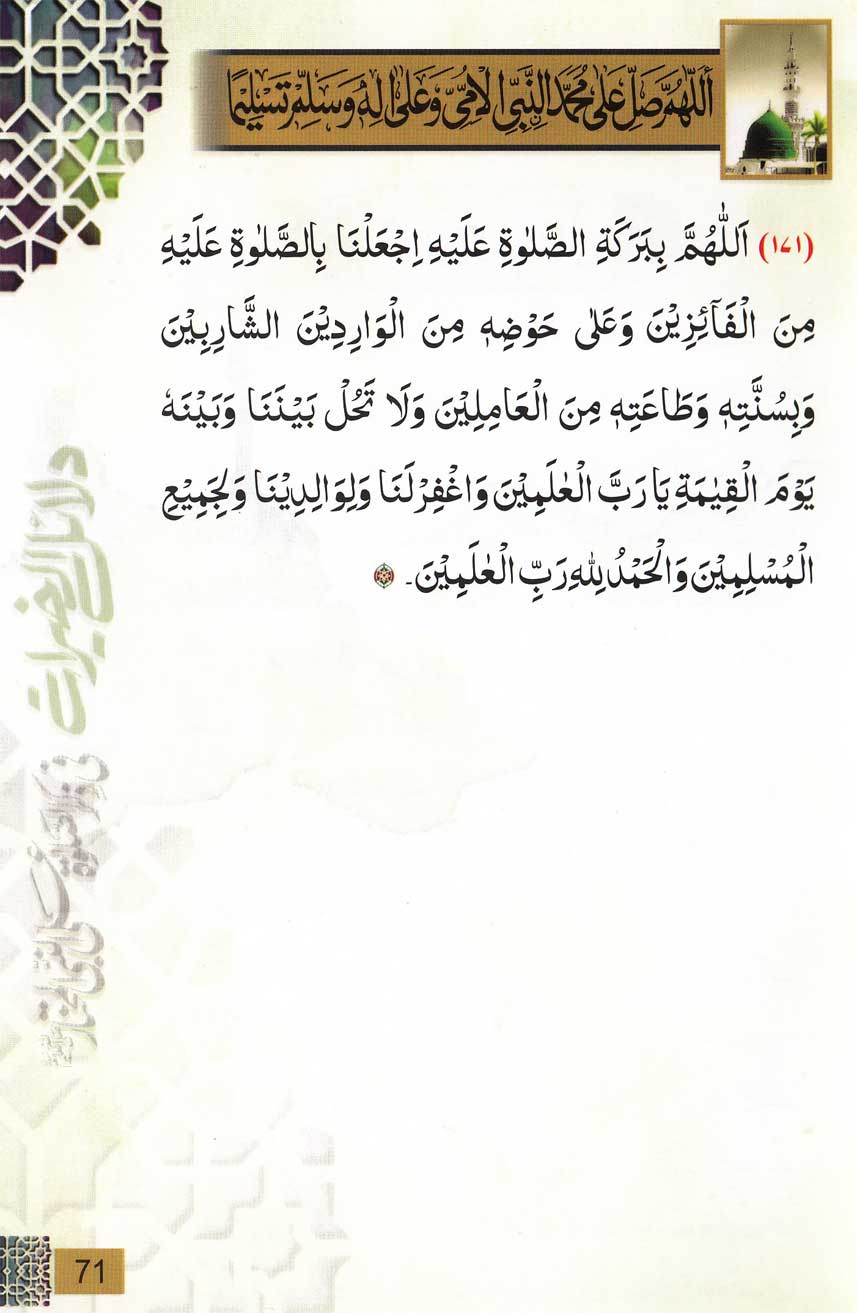 اَللّٰهُمَّ صَلِّ عَلٰى مُحَمَّدِ النَّبِيِّ الْاُمِّيِّ وَعَلٰى اٰلِهٖ وَسَلِّمْ تَسْلِيْمًا
(١٧١) اَللّٰهُمَّ بِبَرَكَةِ الصَّلٰوةِ عَلَيْهِ اِجْعَلْنَا بِالصَّلٰوةِ عَلَيْهِ
مِنَ الْفَآئِزِيْنَ وَعَلٰى حَوْضِهٖ مِنَ الْوَارِدِيْنَ الشَّارِبِيْنَ
وَبِسُنَّتِهٖ وَطَاعَتِهٖ مِنَ الْعَامِلِيْنَ وَلَا تَحُلْ بَيْنَنَا وَبَيْنَهٗ
يَوْمَ الْقِيٰمَةِ يَا رَبَّ الْعٰلَمِيْنَ وَاغْفِرْلَنَا وَلِوَالِدِيْنَا وَلِجَمِيْعِ
الْمُسْلِمِيْنَ وَالْحَمْدُ لِلّٰهِ رَبِّ الْعٰلَمِيْنَ۔
دلائل الخیرات
71